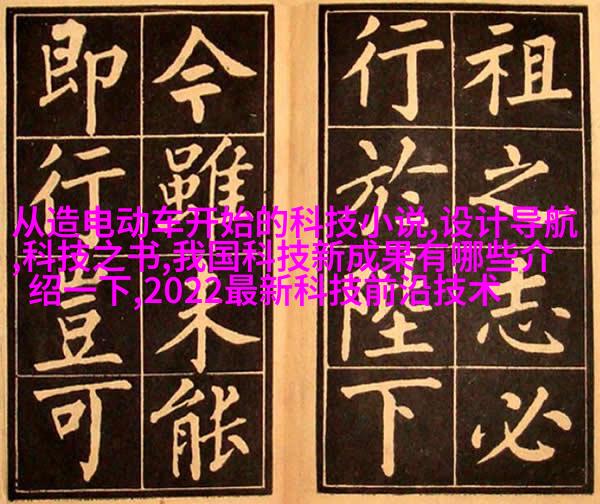 祖之志必
行於陛下
今雖未能
即行豈可
从造电动车开始的科技小说,设计导航
,科技之书,我国科技新成果有哪些介
绍一下,2022最新科技前沿技术